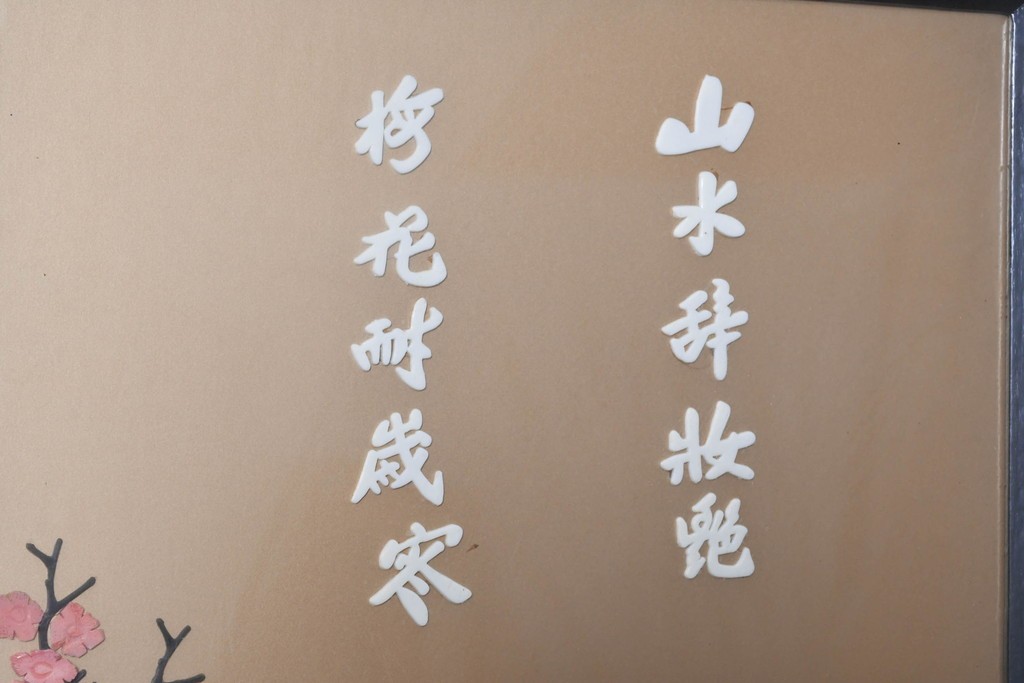 山水辞妝艷
梅花耐歲寒